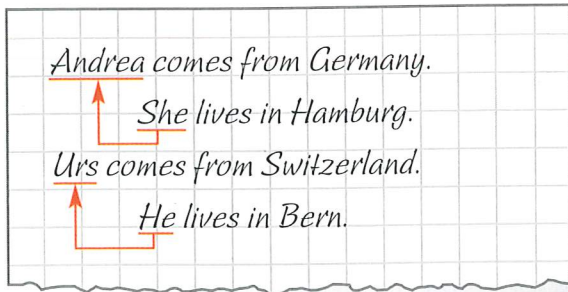 Andrea comes from Germany.
She lives in Hamburg.
Urs comes from Switzerland.
He lives in Bern.